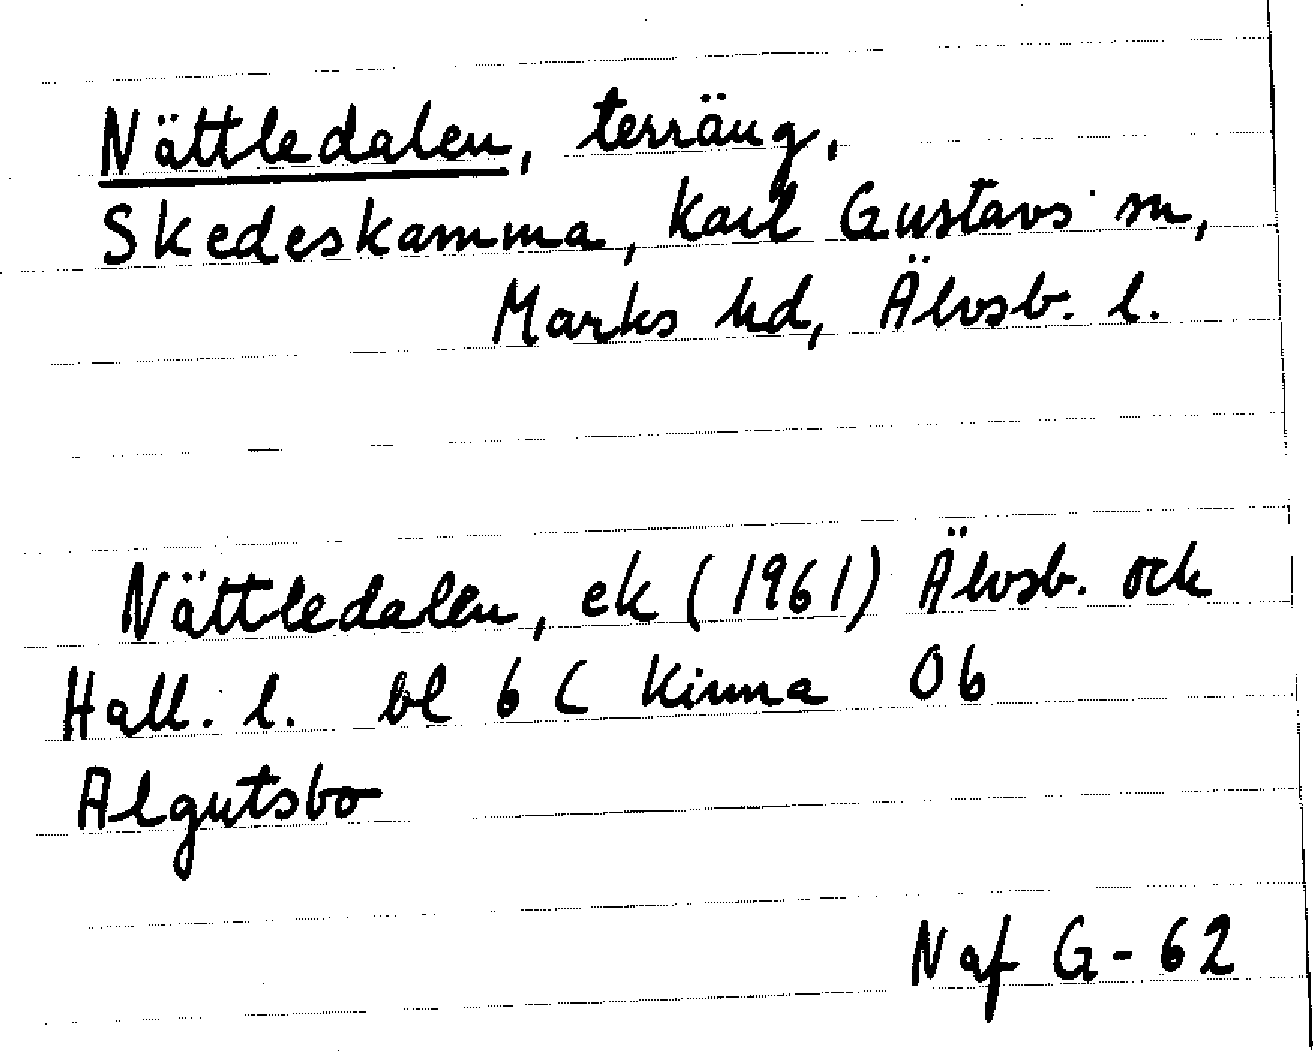 Nättledalen, terräng,
Skedeskamma, Karl Gustavs sn,
Marks hd, Älvsb. l.
Nättledalen, ek (1961) Älvsb. och
Hall. l. bl 6 C Kinna 0b
Algutsbo
Naf G-62